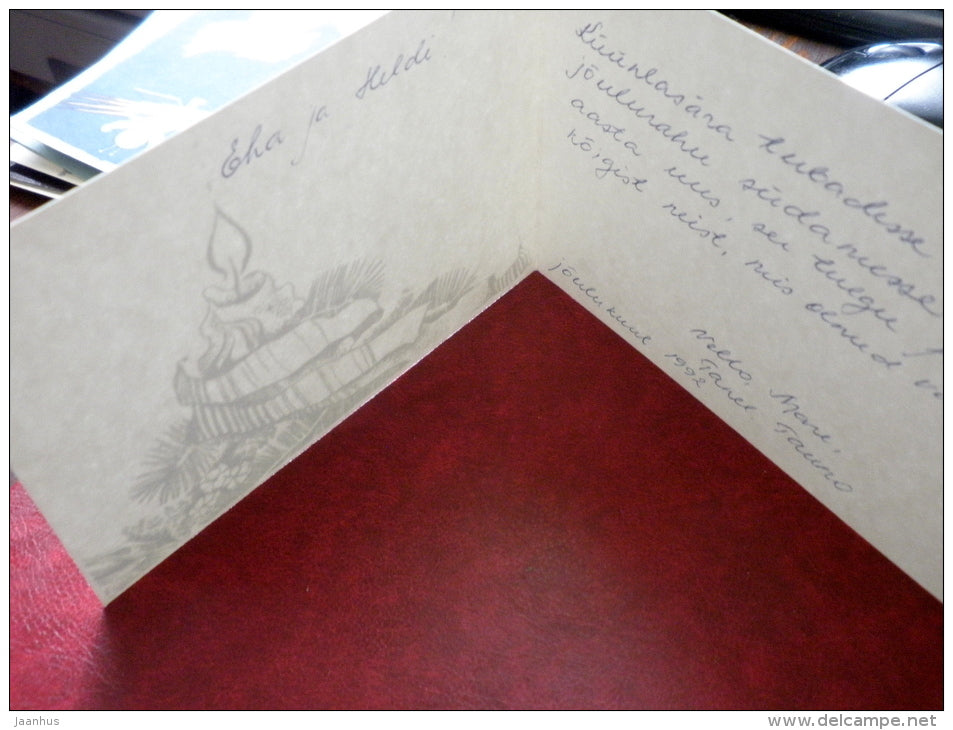 Eha ja Heldi
Küünlasära tubadesse
jõulurahu südamesse
aasta uus, see tulgu
kõigist neist, mis olnud
Vello, Mare,
Tanel, Tauno
jõulukuul 1992
jaanhus
www.delcampe.net